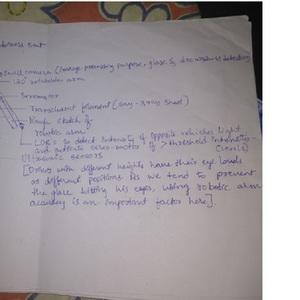 Small camera (image processing purpose, glare & drowsiness detection)
120° rotatable arm
Servomotor
Translucent filament (say - x-ray sheet)
Rough sketch of
robotic arm
LDRs to detect intensity of opposite vehicles light
and activate servo-motor if > threshold intensity
Ultrasonic sensors
[Drivers with different heights have their eye levels
at different positions. As we tend to prevent
the glare hitting his eyes, using robotic arm
accuracy is an important factor here].